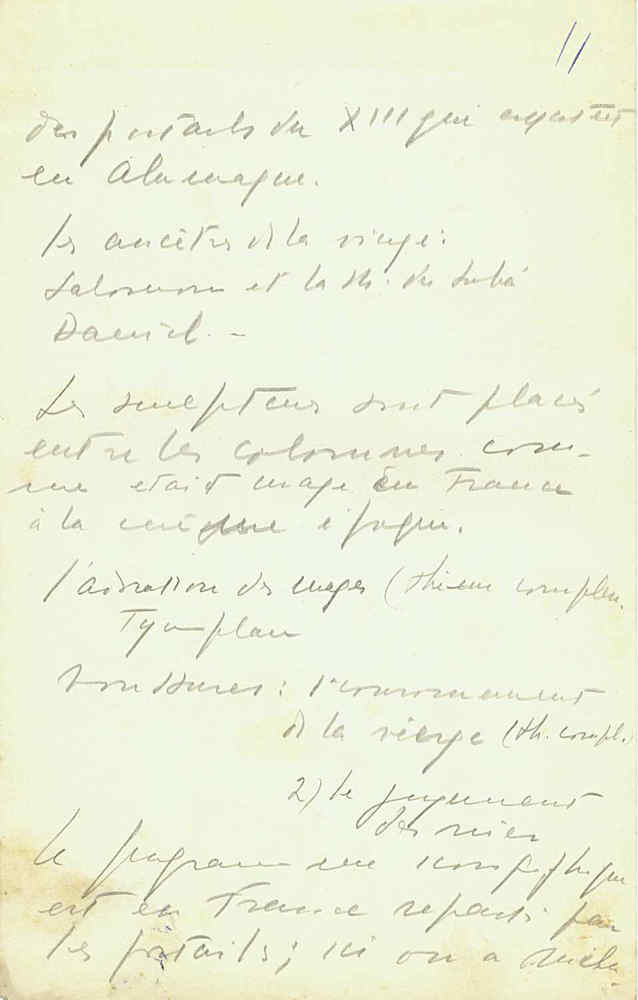 11
des portails du XIII qui existent
en Alemagne.
les ancêtres de la vierge:
Salomon et la du Saba
Daniel. -
Les sculpteurs sont placés
entre les colonnes com-
me etait usage en France
à la même époque.
l'adoration des mages (
Tympan
Voussures: 1 couronnement
de la vierge (th. compl.
2) le jugement
dernier
le programme iconographique
est en France reparti par
les portails; ici on a